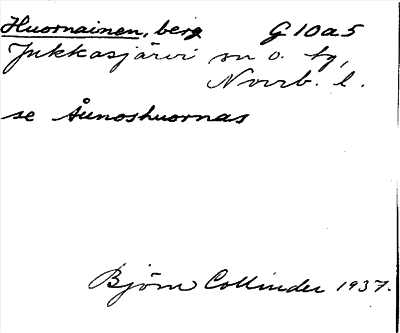 Huornainen, berg G 10 a 5
Jukkasjärvi sn o. tg,
Norrb. l.
se Åunoshuornas
Björn Collinder 1937.